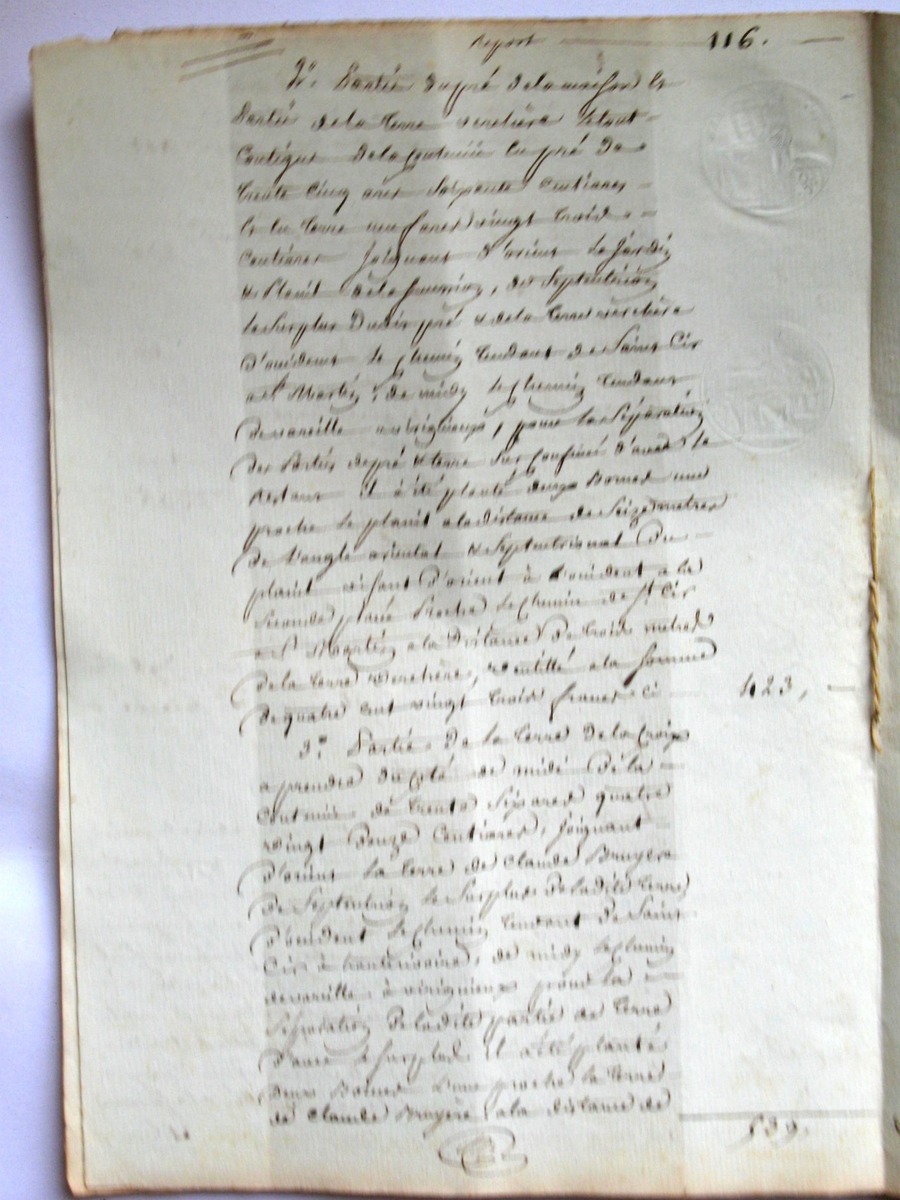 Report 116.
2°. Partie du pré de la maison et
Partie de la terre verchère le tout
Contigue de la Contenue le pré de
trente Cinq ares Soixante Centiares
Et la terre neuf ares vingt trois
Centiares joignant d'orient le jardin
& Plait de la , de Septentrion
le Surplus dudit pré & de la terre verchère
D'occident le Chemin tendant de Saint Cir
a St Martin, de midy le Chemin tendant
de à virigneux, pour la Séparation
des Parties de pré & terre Sus Confinés d'avec le
Restant il a été planté deux Bornes une
proche le plait a la distance de Seize metres
de l'angle oriental & Septentrional du
plait visant d'orient à l'occident a la
Seconde placé Proche le Chemin de St. Cir
a St Martin a la Distance De trois metres
de la terre verchère, ventillé a la Somme
de quatre cent vingt trois francs ci 423,
3°. Partie De la terre de la Croix
a prendre du Coté de midi De la
Contenue de trente Six ares quatre
vingt douze Centiares, joignant
d'orient la terre de Claude Bruyère
de Septentrion le Surplus de ladite terre
d'occident le Chemin tendant de Saint
Cir à , de midy le Chemin
de à virigneux pour la
Séparation de ladite partie de terre
d'avec le Surplus il a été planté
deux Bornes l'une proche la terre
de Claude Bruyère a la distance de
539.